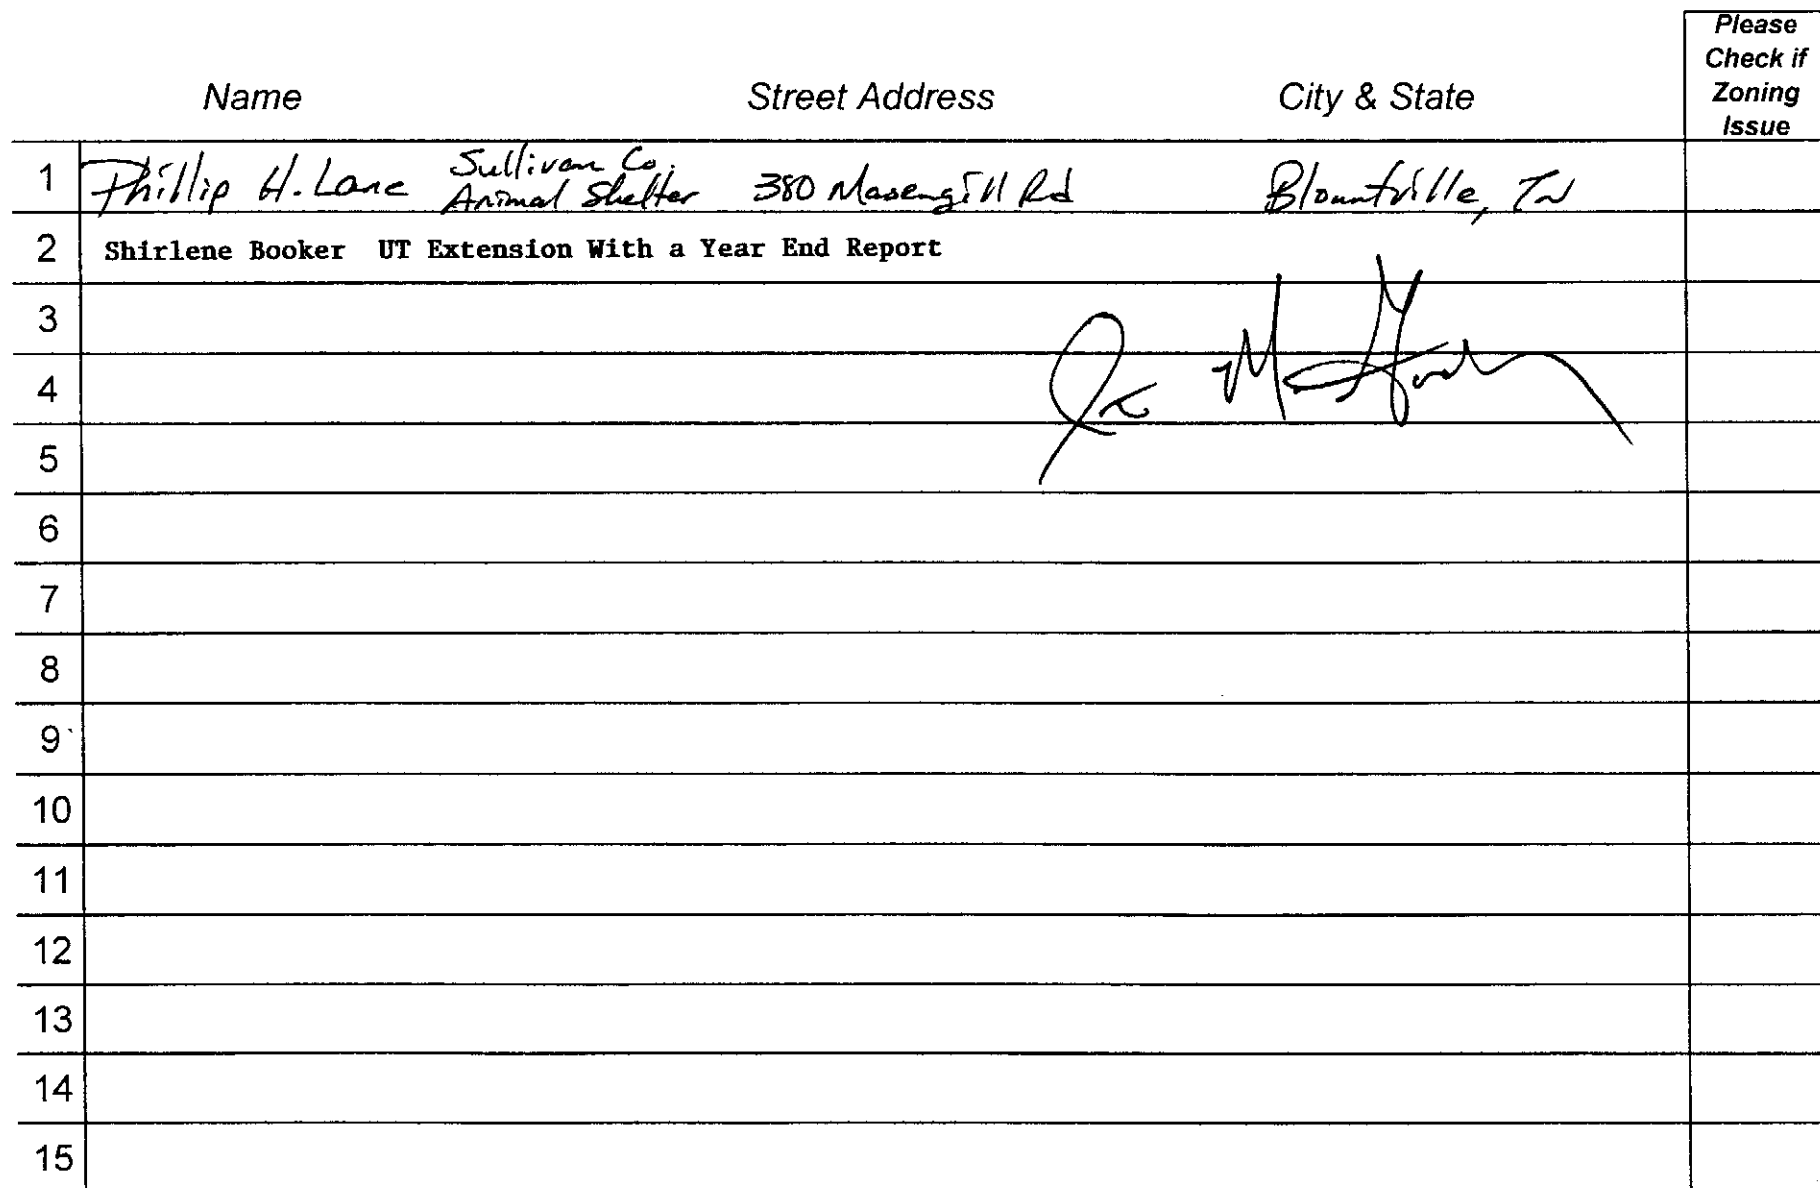 Name Street Address City & State Please Check if Zoning Issue
1 Phillip H. Lane Sullivan Co. Animal Shelter 380 Masengill Rd Blountville, TN
2 Shirlene Booker UT Extension With a Year End Report
3
4
5
6
7
8
9
10
11
12
13
14
15